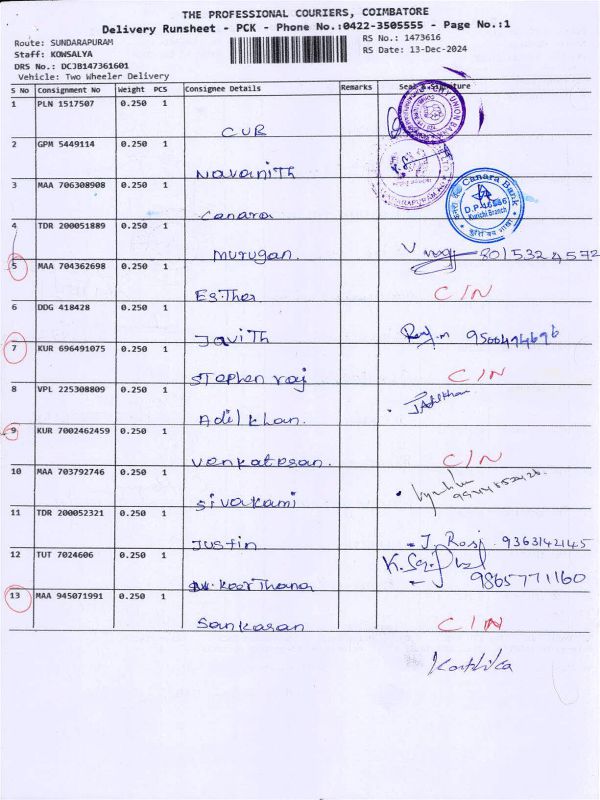 THE PROFESSIONAL COURIERS, COIMBATORE
Delivery Runsheet - PCK - Phone No.:0422-3505555 - Page No.:1
Route: SUNDARAPURAM RS No.: 1473616
Staff: KOWSALYA RS Date: 13-Dec-2024
DRS No.: DCJB147361601
Vehicle: Two Wheeler Delivery
S No Consignment No Weight PCS Consignee Details Remarks Seal & Signature
1 PLN 1517507 0.250 1 CUB
2 GPM 5449114 0.250 1 Navanith
3 MAA 706308908 0.250 1 Canara
Canara Bank
Kurichi Branch
4 TDR 200051889 0.250 1 Murugan. 8015324572
5 MAA 704362698 0.250 1 Esther C/N
6 DDG 418428 0.250 1 Javith
7 KUR 696491075 0.250 1 Stephen raj C/N
8 VPL 225308809 0.250 1 Adil khan. J.Adilkhan
9 KUR 7002462459 0.250 1 Venkatesan. C/N
10 MAA 703792746 0.250 1 Sivakami
11 TDR 200052321 0.250 1 Justin J. Rosj 9363142145
12 TUT 7024606 0.250 1 Keerthana 9865771160
13 MAA 945071991 0.250 1 Sankaran C/N
Karthika